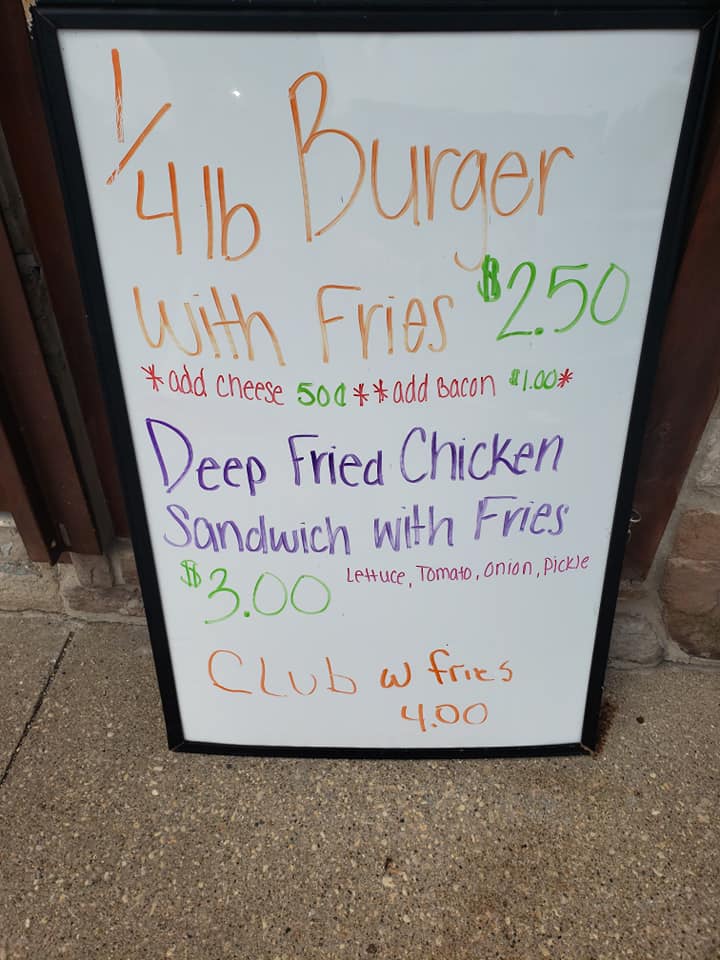 1/4 lb Burger
With Fries $2.50
*add cheese 50¢**add Bacon $1.00*
Deep Fried Chicken
Sandwich with Fries
$3.00 Lettuce, Tomato, Onion, Pickle
Club w fries
4.00